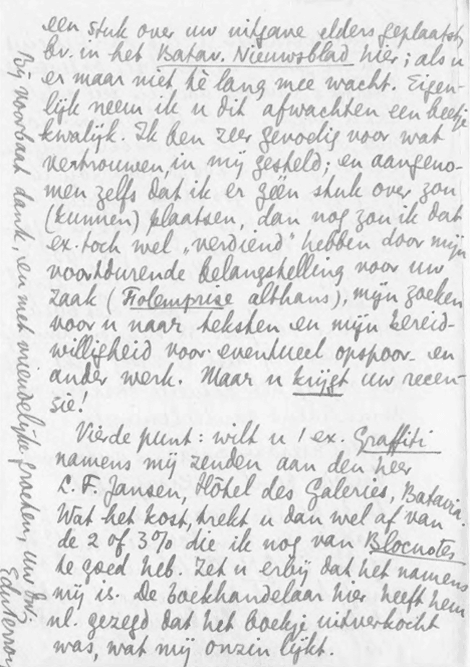 een stuk over uw uitgave elders geplaatst,
bv. in het Batav. Nieuwsblad hier; als u
er maar niet tè lang mee wacht. Eigen-
lijk neem ik u dit afwachten een beetje
kwalijk. Ik ben zeer gevoelig voor wat
vertrouwen, in mij gesteld; en aangeno-
men zelfs dat ik er géén stuk over zou
(kunnen) plaatsen, dan nog zou ik dat
ex. toch wel „verdiend" hebben door mijn
voortdurende belangstelling voor uw
zaak (Folemprise althans), mijn zoeken
voor u naar teksten en mijn bereid-
willigheid voor eventueel opspoor- en
ander werk. Maar u krijgt uw recen-
sie!
Vierde punt: wilt u 1 ex. Graffiti
namens mij zenden aan den heer
L. F. Jansen, Hôtel des Galeries, Batavia.
Wat het kost, trekt u dan wel af van
de 2 of 3% die ik nog van Blocnotes
te goed heb. Zet u erbij dat het namens
mij is. De boekhandelaar hier heeft hem
nl. gezegd dat het boekje uitverkocht
was, wat mij onzin lijkt.
Bij voorbaat dank, en met vriendelijke groeten, uw dw.
EduPerron